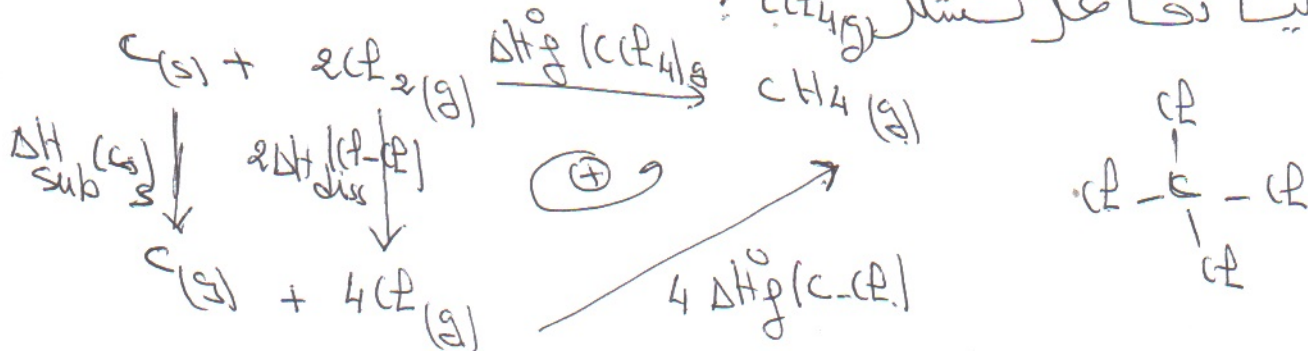 CCl4(g)
C(s) + 2Cl2(g) ΔH°f(CCl4)g CH4(g)
ΔHsub(C)s 2ΔHdiss(Cl-Cl) +
C(g) + 4Cl(g) 4ΔH°f(C-Cl)
Cl
Cl - C - Cl
Cl